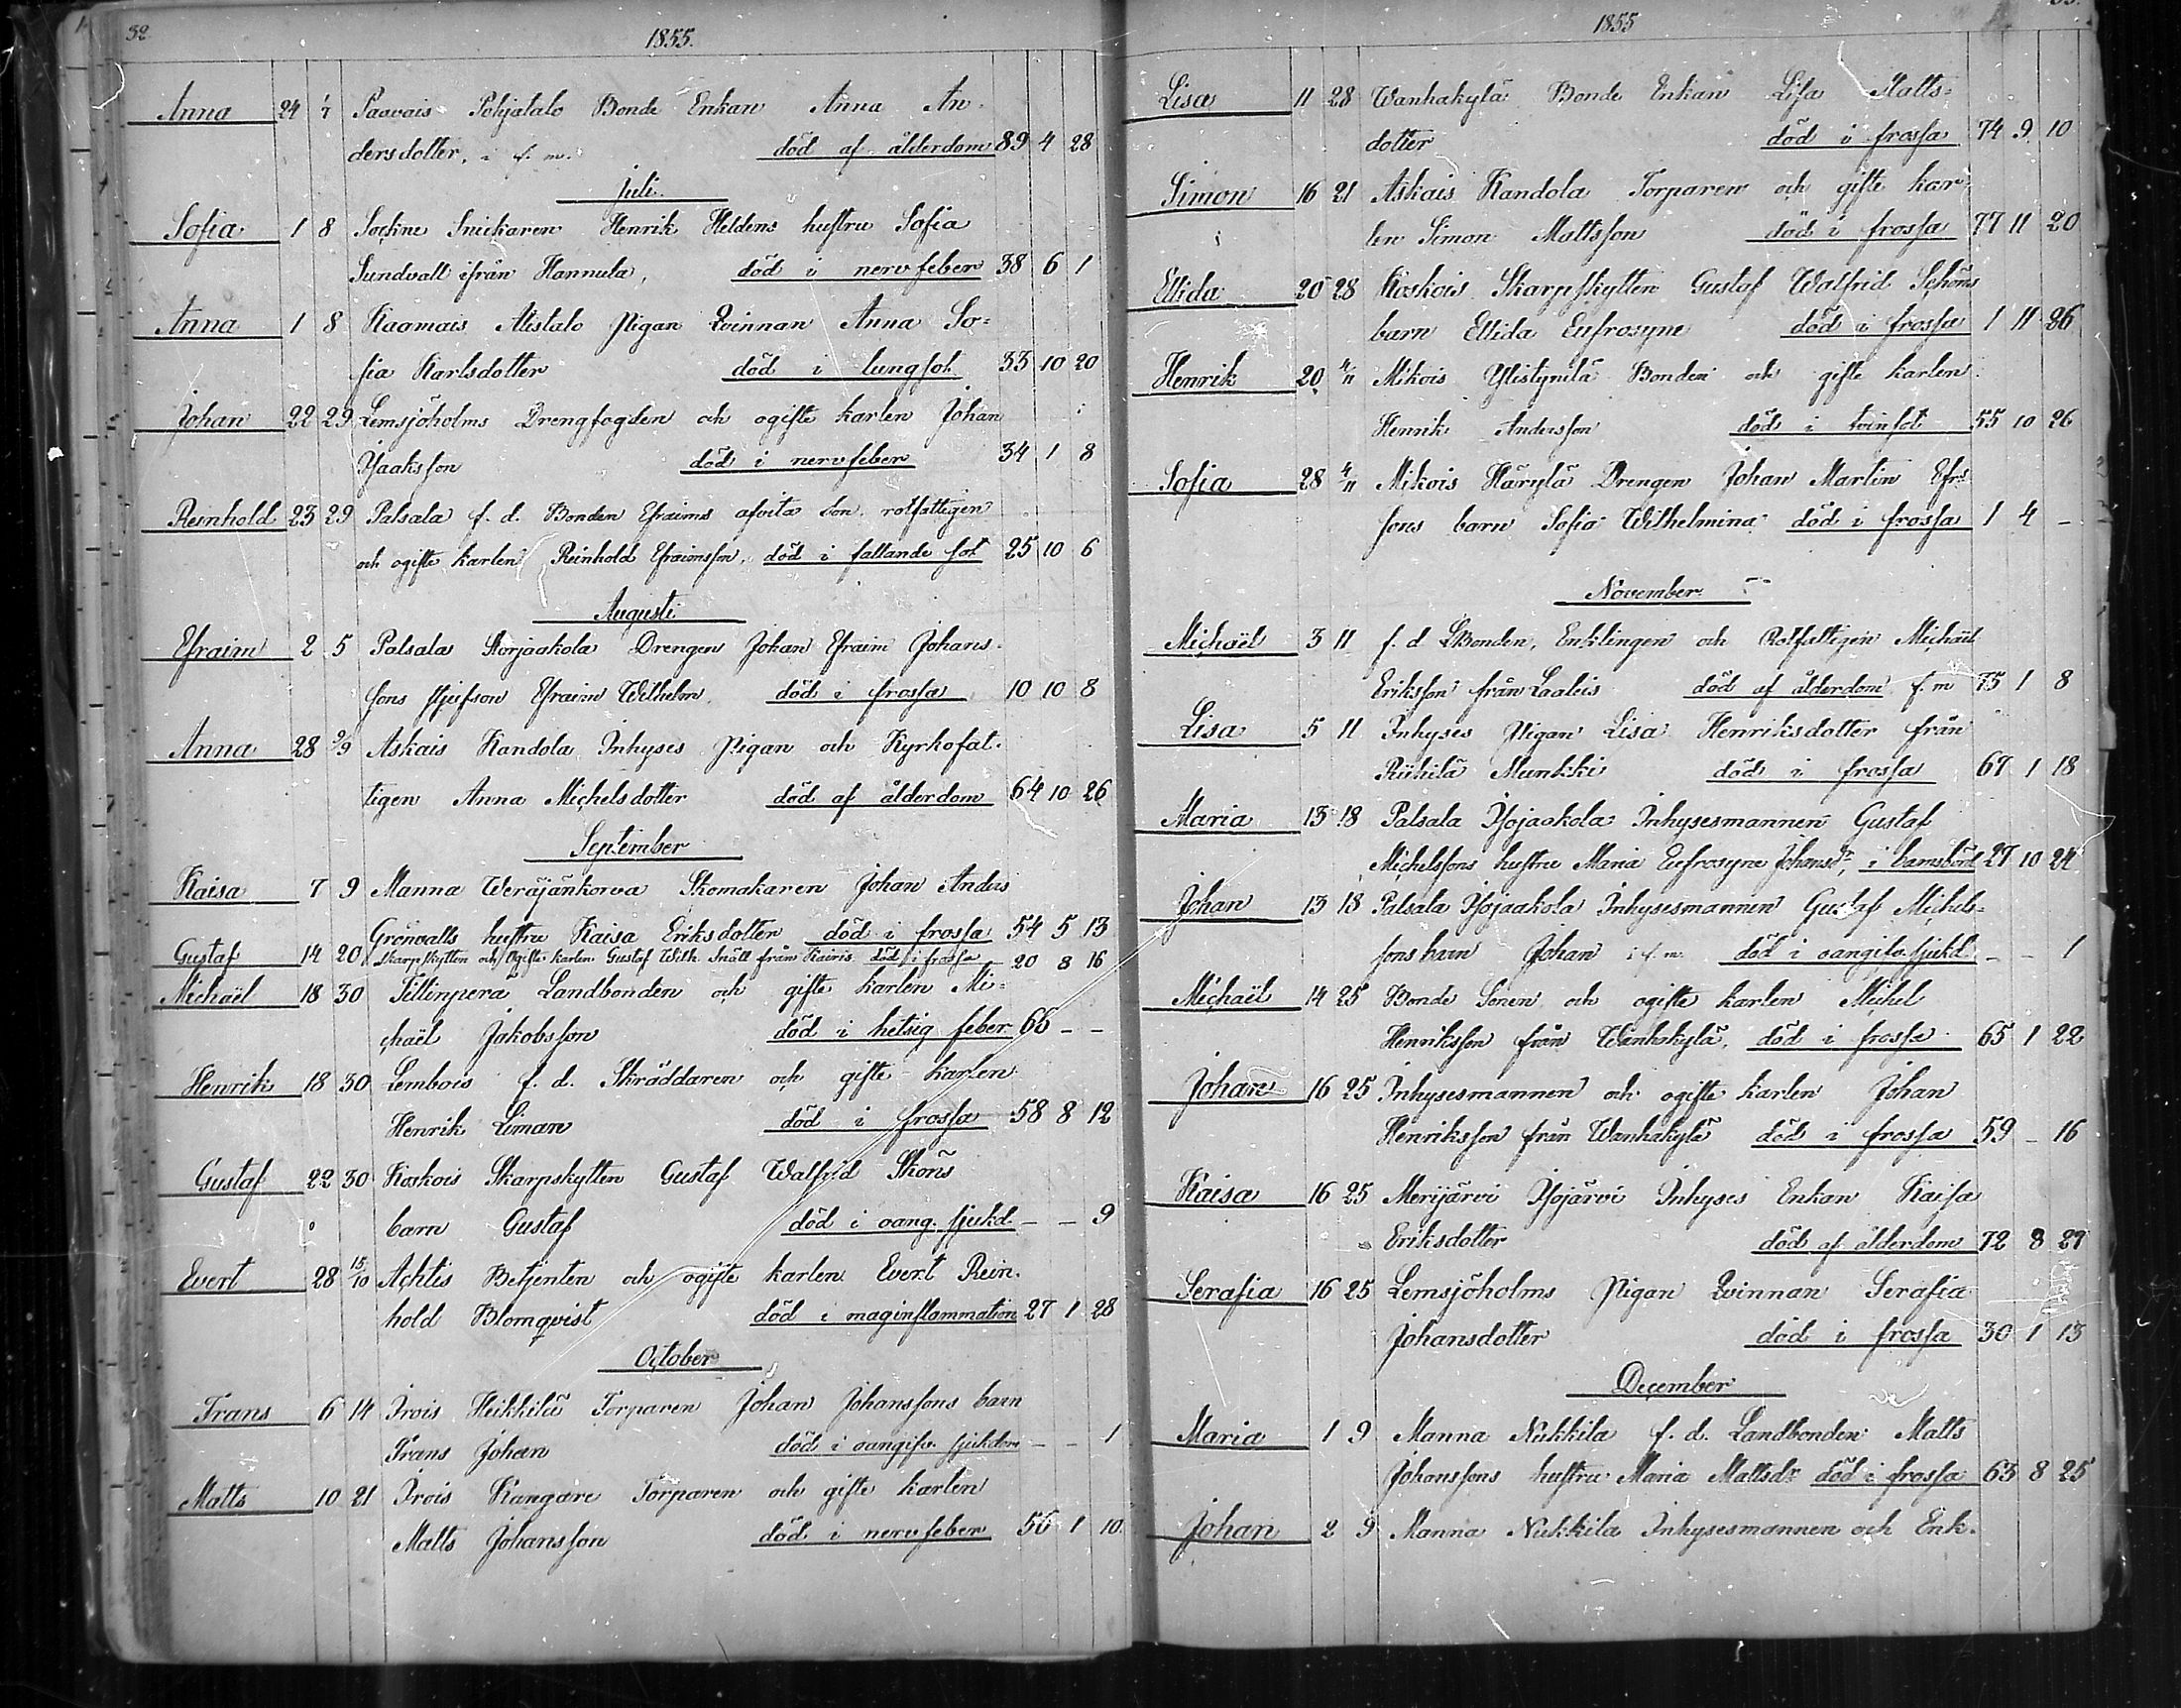 32
1855.
Anna 24 1/7 Paavais Pohjatalo Bonde Enkan Anna An-
dersdotter, i f. m. död af ålderdom 89 4 28
Juli.
Sofia 1 8 Sockne Snickaren Henrik Heldens hustru Sofia
Sundvall ifrån Hannula, död i nervfeber 38 6 1
Anna 1 8 Kaamais Alistalo Pigan Qvinnan Anna So=
fia Karlsdotter död i lungsot 33 10 20
Johan 22 29 Lemsjöholms Drengfogden och ogifte karlen Johan
Isaksson död i nervfeber 34 1 8
Reinhold 23 29 Palsala f. d. Bonden Efraims afvita son rotfattigen
och ogifte karlen Reinhold Efraimsson, död i fallande sot 25 10 6
Augusti
Efraim 2 5 Palsala Storjaakola Drengen Johan Efraim Johans-
sons stjufson Efraim Wilhelm död i frossa 10 10 8
Anna 28 2/9 Askais Kandola Inhyses Pigan och Kyrkofat-
tigen Anna Michelsdotter död af ålderdom 64 10 26
September
Kaisa 7 9 Manna Weräjänkorva Skomakaren Johan Anders
Grönvalls hustru Kaisa Eriksdotter död i frossa 54 5 13
Gustaf 14 20 Skarpskytten och Ogifte karlen Gustaf Wilh. Snäll från Kairis död i frossa 20 8 16
Michaël 18 30 Tillinperä Landbonden och gifte karlen Mi=
chaël Jakobsson död i hetsig feber 66 - -
Henrik 18 30 Lembois f. d. Skräddaren och gifte karlen
Henrik Liman död i frossa 58 8 12
Gustaf 22 30 Koskois Skarpskytten Gustaf Walfrid Sköns
barn Gustaf död i oang. sjukd. - - 9
Evert 28 15/10 Achtis Betjenten och ogifte karlen Evert Rein-
hold Blomqvist död i maginflammation 27 1 28
October
Frans 6 14 Irois Heikkilä Torparen Johan Johanssons barn
Frans Johan död i oangifv. sjukdom - - 1
Matts 10 21 Irois Kangare Torparen och gifte karlen
Matts Johansson död i nervfeber 56 1 10.
1855
Lisa 11 28 Wanhakylä Bonde Enkan Lisa Matts=
dotter död i frossa 74 9 10
Simon 16 21 Askais Kandola Torparen och gifte kar
len Simon Mattsson död i frossa 77 11 20
Ellida 20 28 Koskois Skarpskytten Gustaf Walfrid Schöns
barn Ellida Eufrosyne död i frossa 1 11 26
Henrik 20 4/11 Mikois Ylistynilä Bonden och gifte karlen
Henrik Andersson död i tvinsot 55 10 26
Sofia 28 4/11 Mikois Härylä Drengen Johan Martin Efr
sons barn Sofia Wilhelmina död i frossa 1 4 -
November
Michaël 3 11 f. d. Bonden, Enklingen och Rotfattigen Michaël
Eriksson från Laaleis död af ålderdom f. m 75 1 8
Lisa 5 11 Inhyses Pigan Lisa Henriksdotter från
Riihilä Munkki död i frossa 67 1 18
Maria 13 18 Palsala Isojaakola Inhysesmannen Gustaf
Michelssons hustru Maria Eufrosyne Johansdr, i barnsbörd 27 10 24
Johan 13 18 Palsala Isojaakola Inhysesmannen Gustaf Michels=
sons barn Johan i f. m. död i oangifv. sjukd. - - 1
Michaël 14 25 Bonde Sonen och ogifte karlen Michel
Henriksson från Wanhakylä, död i frossa 65 1 22
Johan 16 25 Inhysesmannen och ogifte karlen Johan
Henriksson från Wanhakylä död i frossa 59 - 16
Kaisa 16 25 Merijärvi Isojärvi Inhyses Enkan Kaisa
Eriksdotter död af ålderdom 72 8 27
Serafia 16 25 Lemsjöholms Pigan Qvinnan Serafia
Johansdotter död i frossa 30 1 13
December
Maria 1 9 Manna Nukkila f. d. Landbonden Matts
Johanssons hustru Maria Mattsdr död i frossa 63 8 25
Johan 2 9 Manna Nukkila Inhysesmannen och Enk-